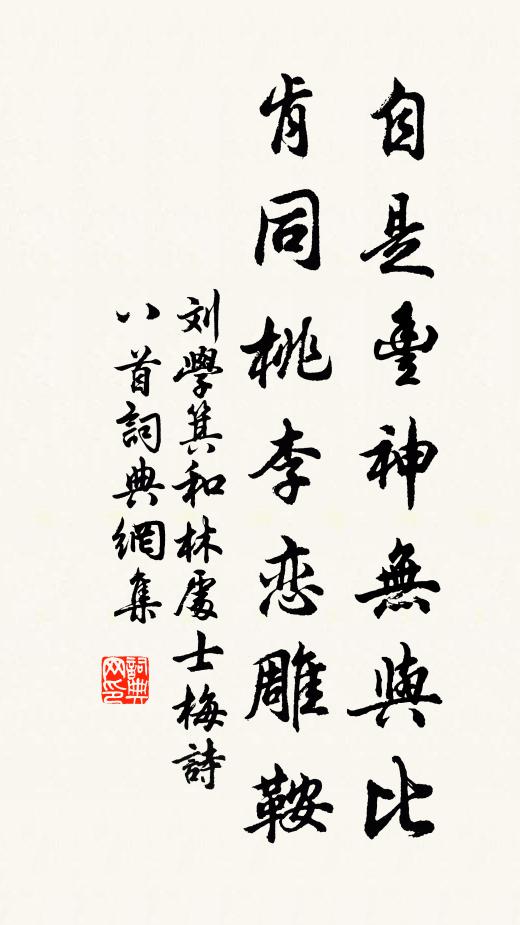 自是豐神無與比
肯同桃李恋雕鞍
刘學箕和林處士梅詩
八首詞典網集
詞典网印